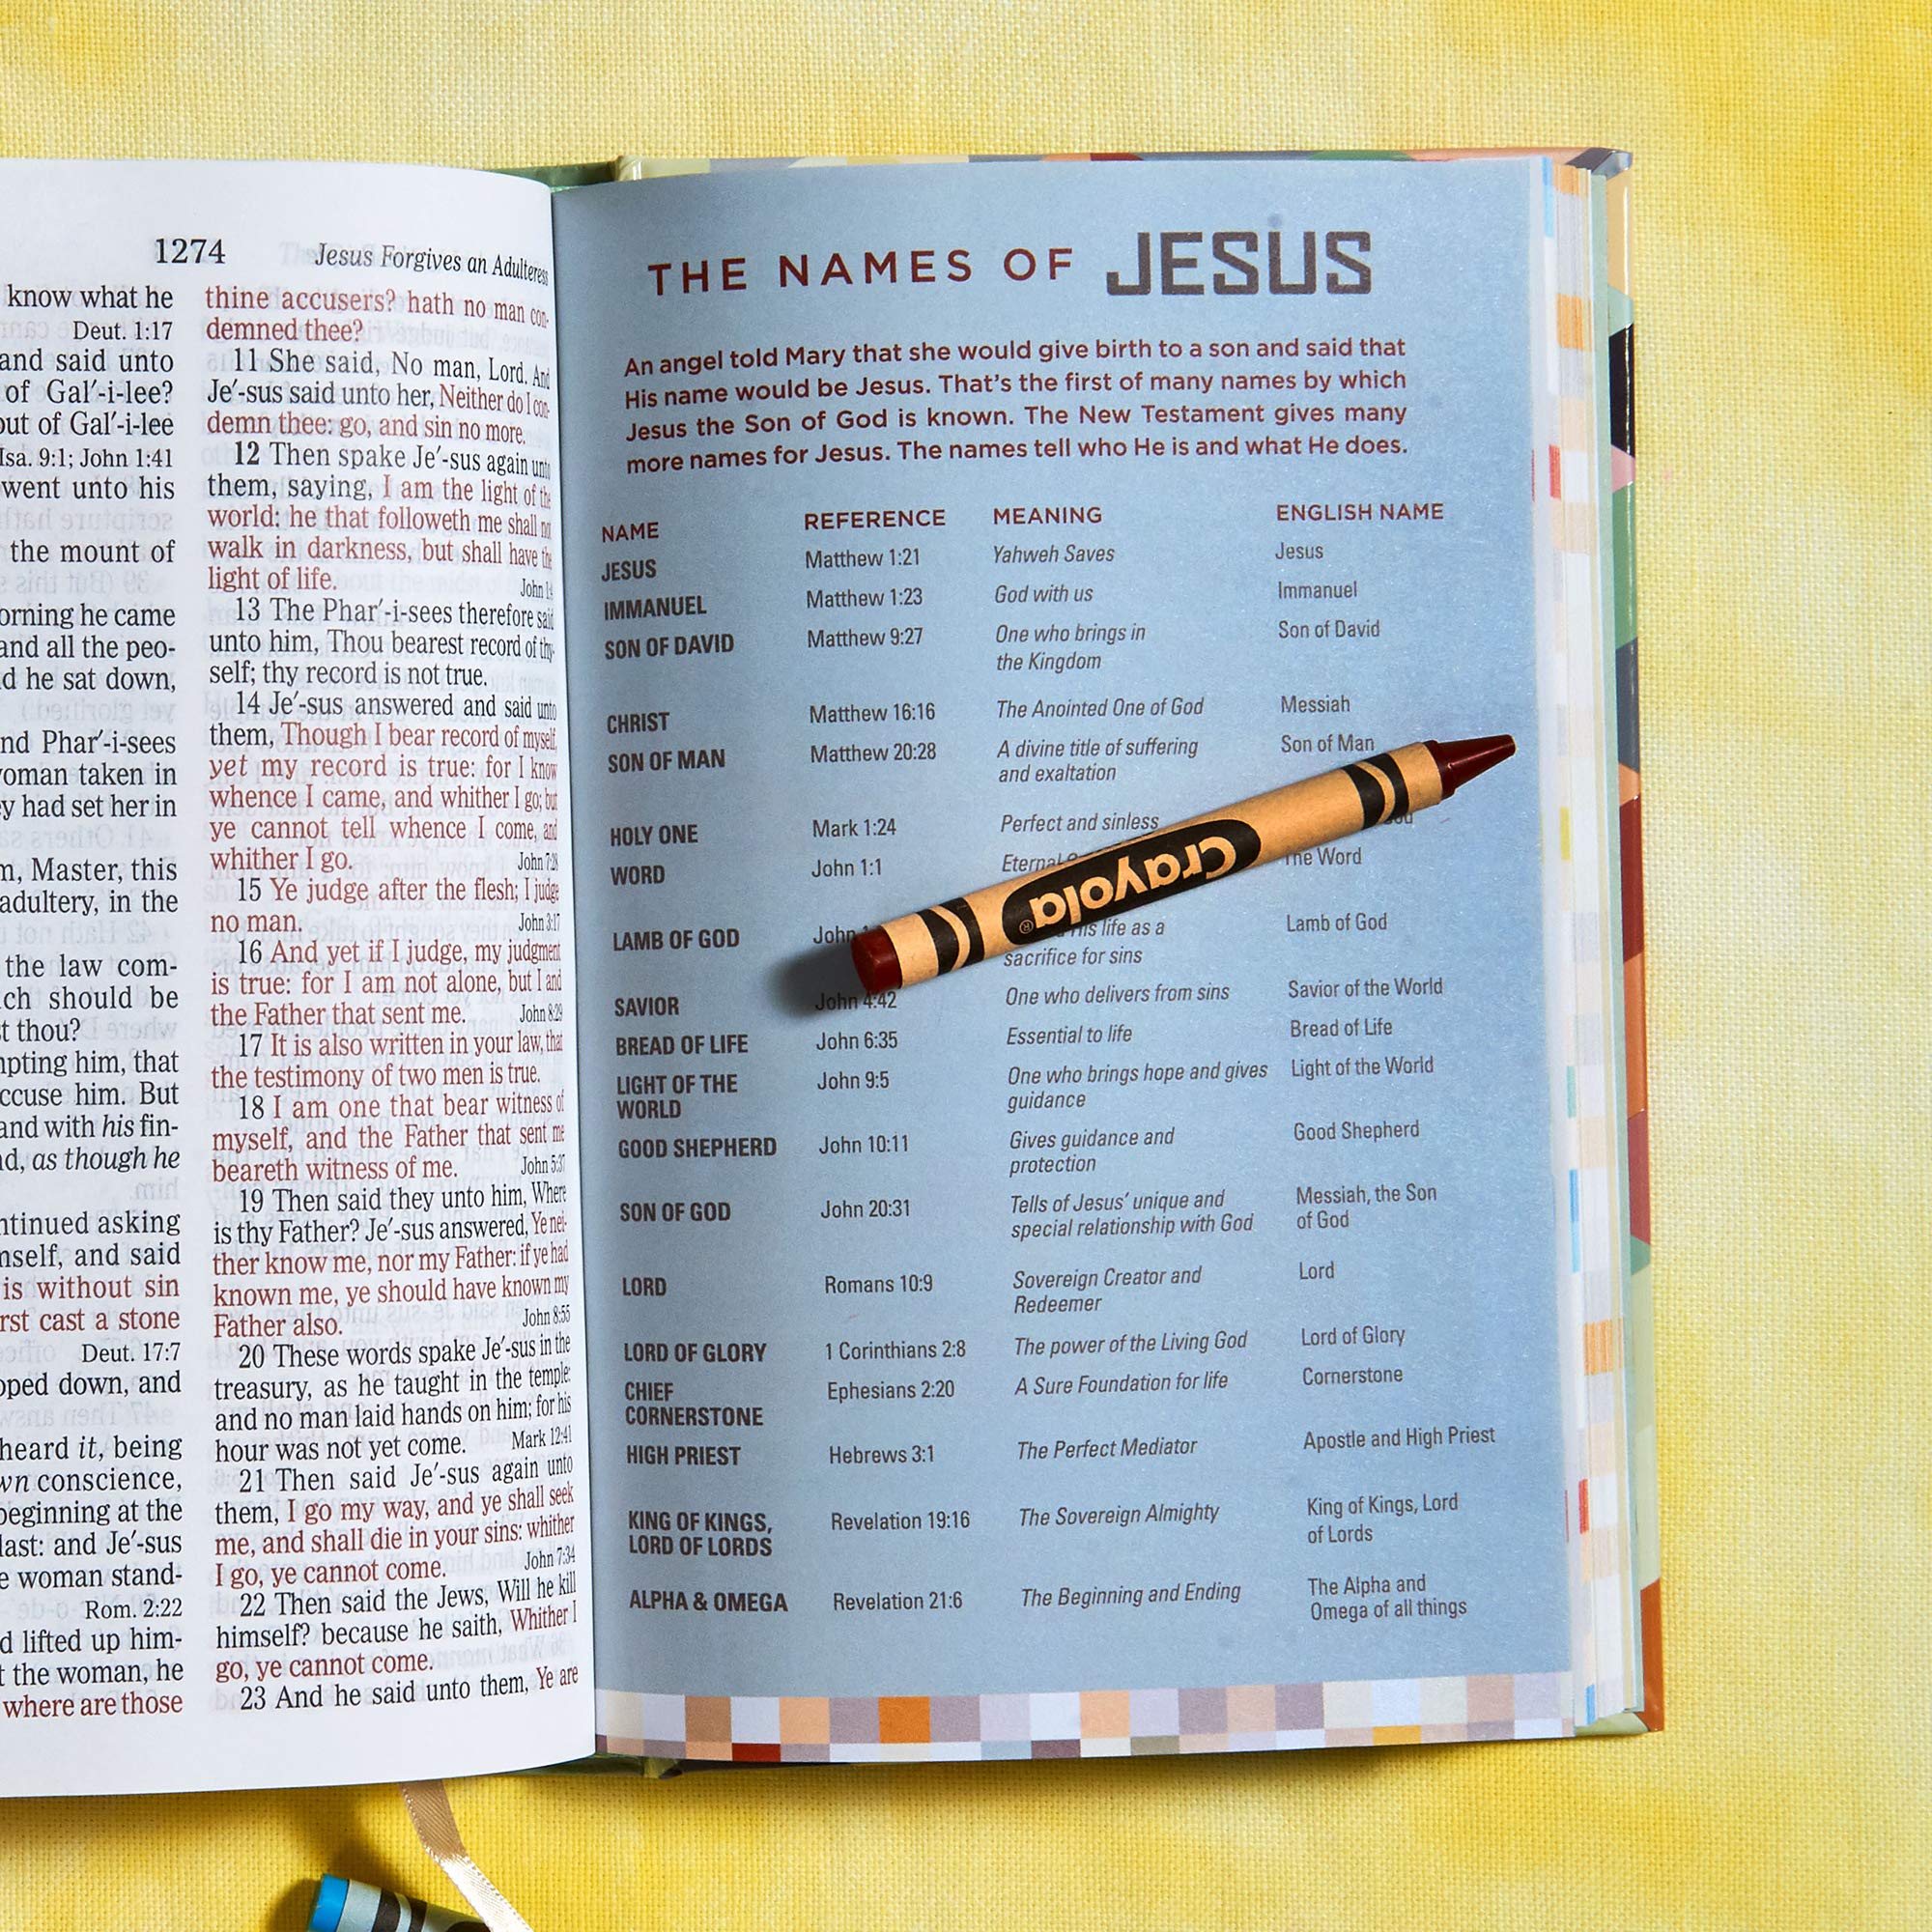 1274
Jesus Forgives an Adulteress
know what he
Deut. 1:17
and said unto
of Gal′-i-lee?
out of Gal′-i-lee
Isa. 9:1; John 1:41
went unto his
the mount of
he came
and all the peo-
he sat down,
Phar′-i-sees
taken in
had set her in
Master, this
adultery, in the
the law com-
should be
thou?
him, that
him. But
and with his fin-
as though he
asked
and said
is without sin
cast a stone
Deut. 17:7
down, and
heard it, being
conscience,
beginning at the
last: and Je′-sus
woman stand-
Rom. 2:22
lifted up him-
the woman, he
where are those
thine accusers? hath no man con-
demned thee?
11 She said, No man, Lord. And
Je′-sus said unto her, Neither do I con-
demn thee: go, and sin no more.
12 Then spake Je′-sus again unto
them, saying, I am the light of the
world: he that followeth me shall not
walk in darkness, but shall have the
light of life.
John 1:4
13 The Phar′-i-sees therefore said
unto him, Thou bearest record of thy-
self; thy record is not true.
14 Je′-sus answered and said unto
them, Though I bear record of myself,
yet my record is true: for I know
whence I came, and whither I go; but
ye cannot tell whence I come, and
whither I go. John 7:28
15 Ye judge after the flesh; I judge
no man. John 3:17
16 And yet if I judge, my judgment
is true: for I am not alone, but I and
the Father that sent me. John 8:29
17 It is also written in your law, that
the testimony of two men is true.
18 I am one that bear witness of
myself, and the Father that sent me
beareth witness of me. John 5:37
19 Then said they unto him, Where
is thy Father? Je′-sus answered, Ye nei-
ther know me, nor my Father: if ye had
known me, ye should have known my
Father also. John 8:55
20 These words spake Je′-sus in the
treasury, as he taught in the temple:
and no man laid hands on him; for his
hour was not yet come. Mark 12:41
21 Then said Je′-sus again unto
them, I go my way, and ye shall seek
me, and shall die in your sins: whither
I go, ye cannot come. John 7:34
22 Then said the Jews, Will he kill
himself? because he saith, Whither I
go, ye cannot come.
23 And he said unto them, Ye are
THE NAMES OF JESUS
An angel told Mary that she would give birth to a son and said that
His name would be Jesus. That's the first of many names by which
Jesus the Son of God is known. The New Testament gives many
more names for Jesus. The names tell who He is and what He does.
NAME REFERENCE MEANING ENGLISH NAME
JESUS Matthew 1:21 Yahweh Saves Jesus
IMMANUEL Matthew 1:23 God with us Immanuel
SON OF DAVID Matthew 9:27 One who brings in Son of David
the Kingdom
CHRIST Matthew 16:16 The Anointed One of God Messiah
SON OF MAN Matthew 20:28 A divine title of suffering Son of Man
and exaltation
HOLY ONE Mark 1:24 Perfect and sinless
WORD John 1:1 Eternal The Word
LAMB OF GOD John life as a Lamb of God
sacrifice for sins
SAVIOR John 4:42 One who delivers from sins Savior of the World
BREAD OF LIFE John 6:35 Essential to life Bread of Life
LIGHT OF THE John 9:5 One who brings hope and gives Light of the World
WORLD guidance
GOOD SHEPHERD John 10:11 Gives guidance and Good Shepherd
protection
SON OF GOD John 20:31 Tells of Jesus' unique and Messiah, the Son
special relationship with God of God
LORD Romans 10:9 Sovereign Creator and Lord
Redeemer
LORD OF GLORY 1 Corinthians 2:8 The power of the Living God Lord of Glory
CHIEF Ephesians 2:20 A Sure Foundation for life Cornerstone
CORNERSTONE
HIGH PRIEST Hebrews 3:1 The Perfect Mediator Apostle and High Priest
KING OF KINGS, Revelation 19:16 The Sovereign Almighty King of Kings, Lord
LORD OF LORDS of Lords
ALPHA & OMEGA Revelation 21:6 The Beginning and Ending The Alpha and
Omega of all things
Crayola®